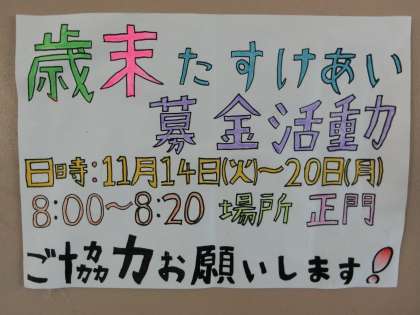 歳末たすけあい
募金活動
日時:11月14日(火)～20日(月)
8:00～8:20 場所 正門
ご協力お願いします!